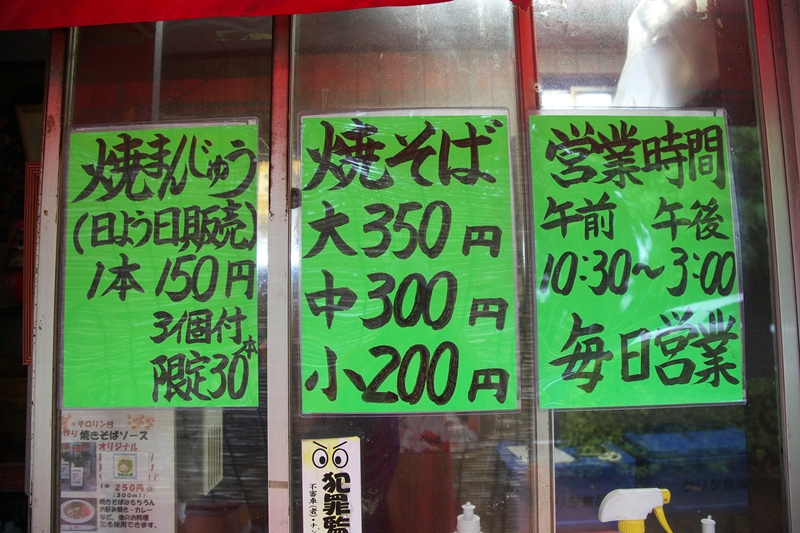 焼まんじゅう
(日よう日販売)
1本 150円
3個付
限定30本
焼そば
大 350円
中 300円
小 200円
営業時間
午前 午後
10:30〜3:00
毎日営業
チロリン村
焼きそばソース
オリジナル
1本 250円
(300ml)
焼きそばはもちろん
お好み焼き・カレー
など、他のお料理
にも使用できます。
犯罪監
不審車(者)・ナン